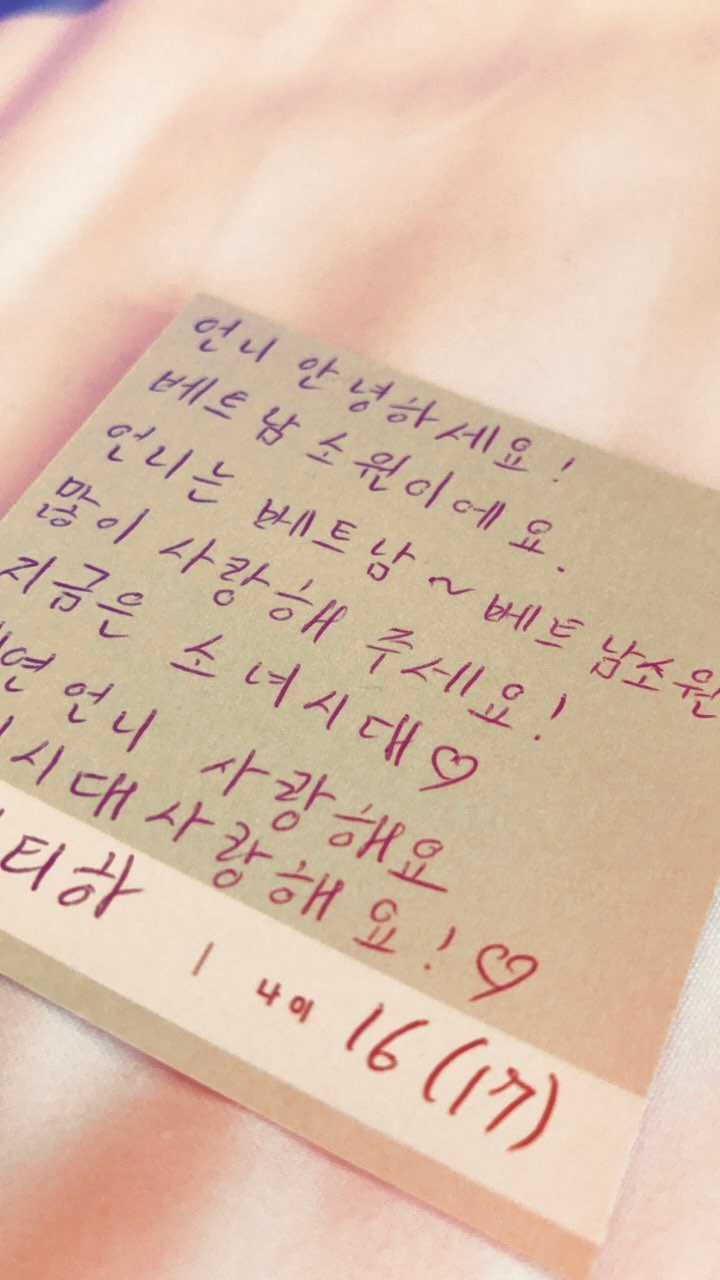 언니 안녕하세요!
베트남 소원이에요.
언니는 베트남~베트남소원
많이 사랑해 주세요!
지금은 소녀시대♡
연 언니 사랑해요
시대사랑해요!♡
티하 | 나이 16(17)